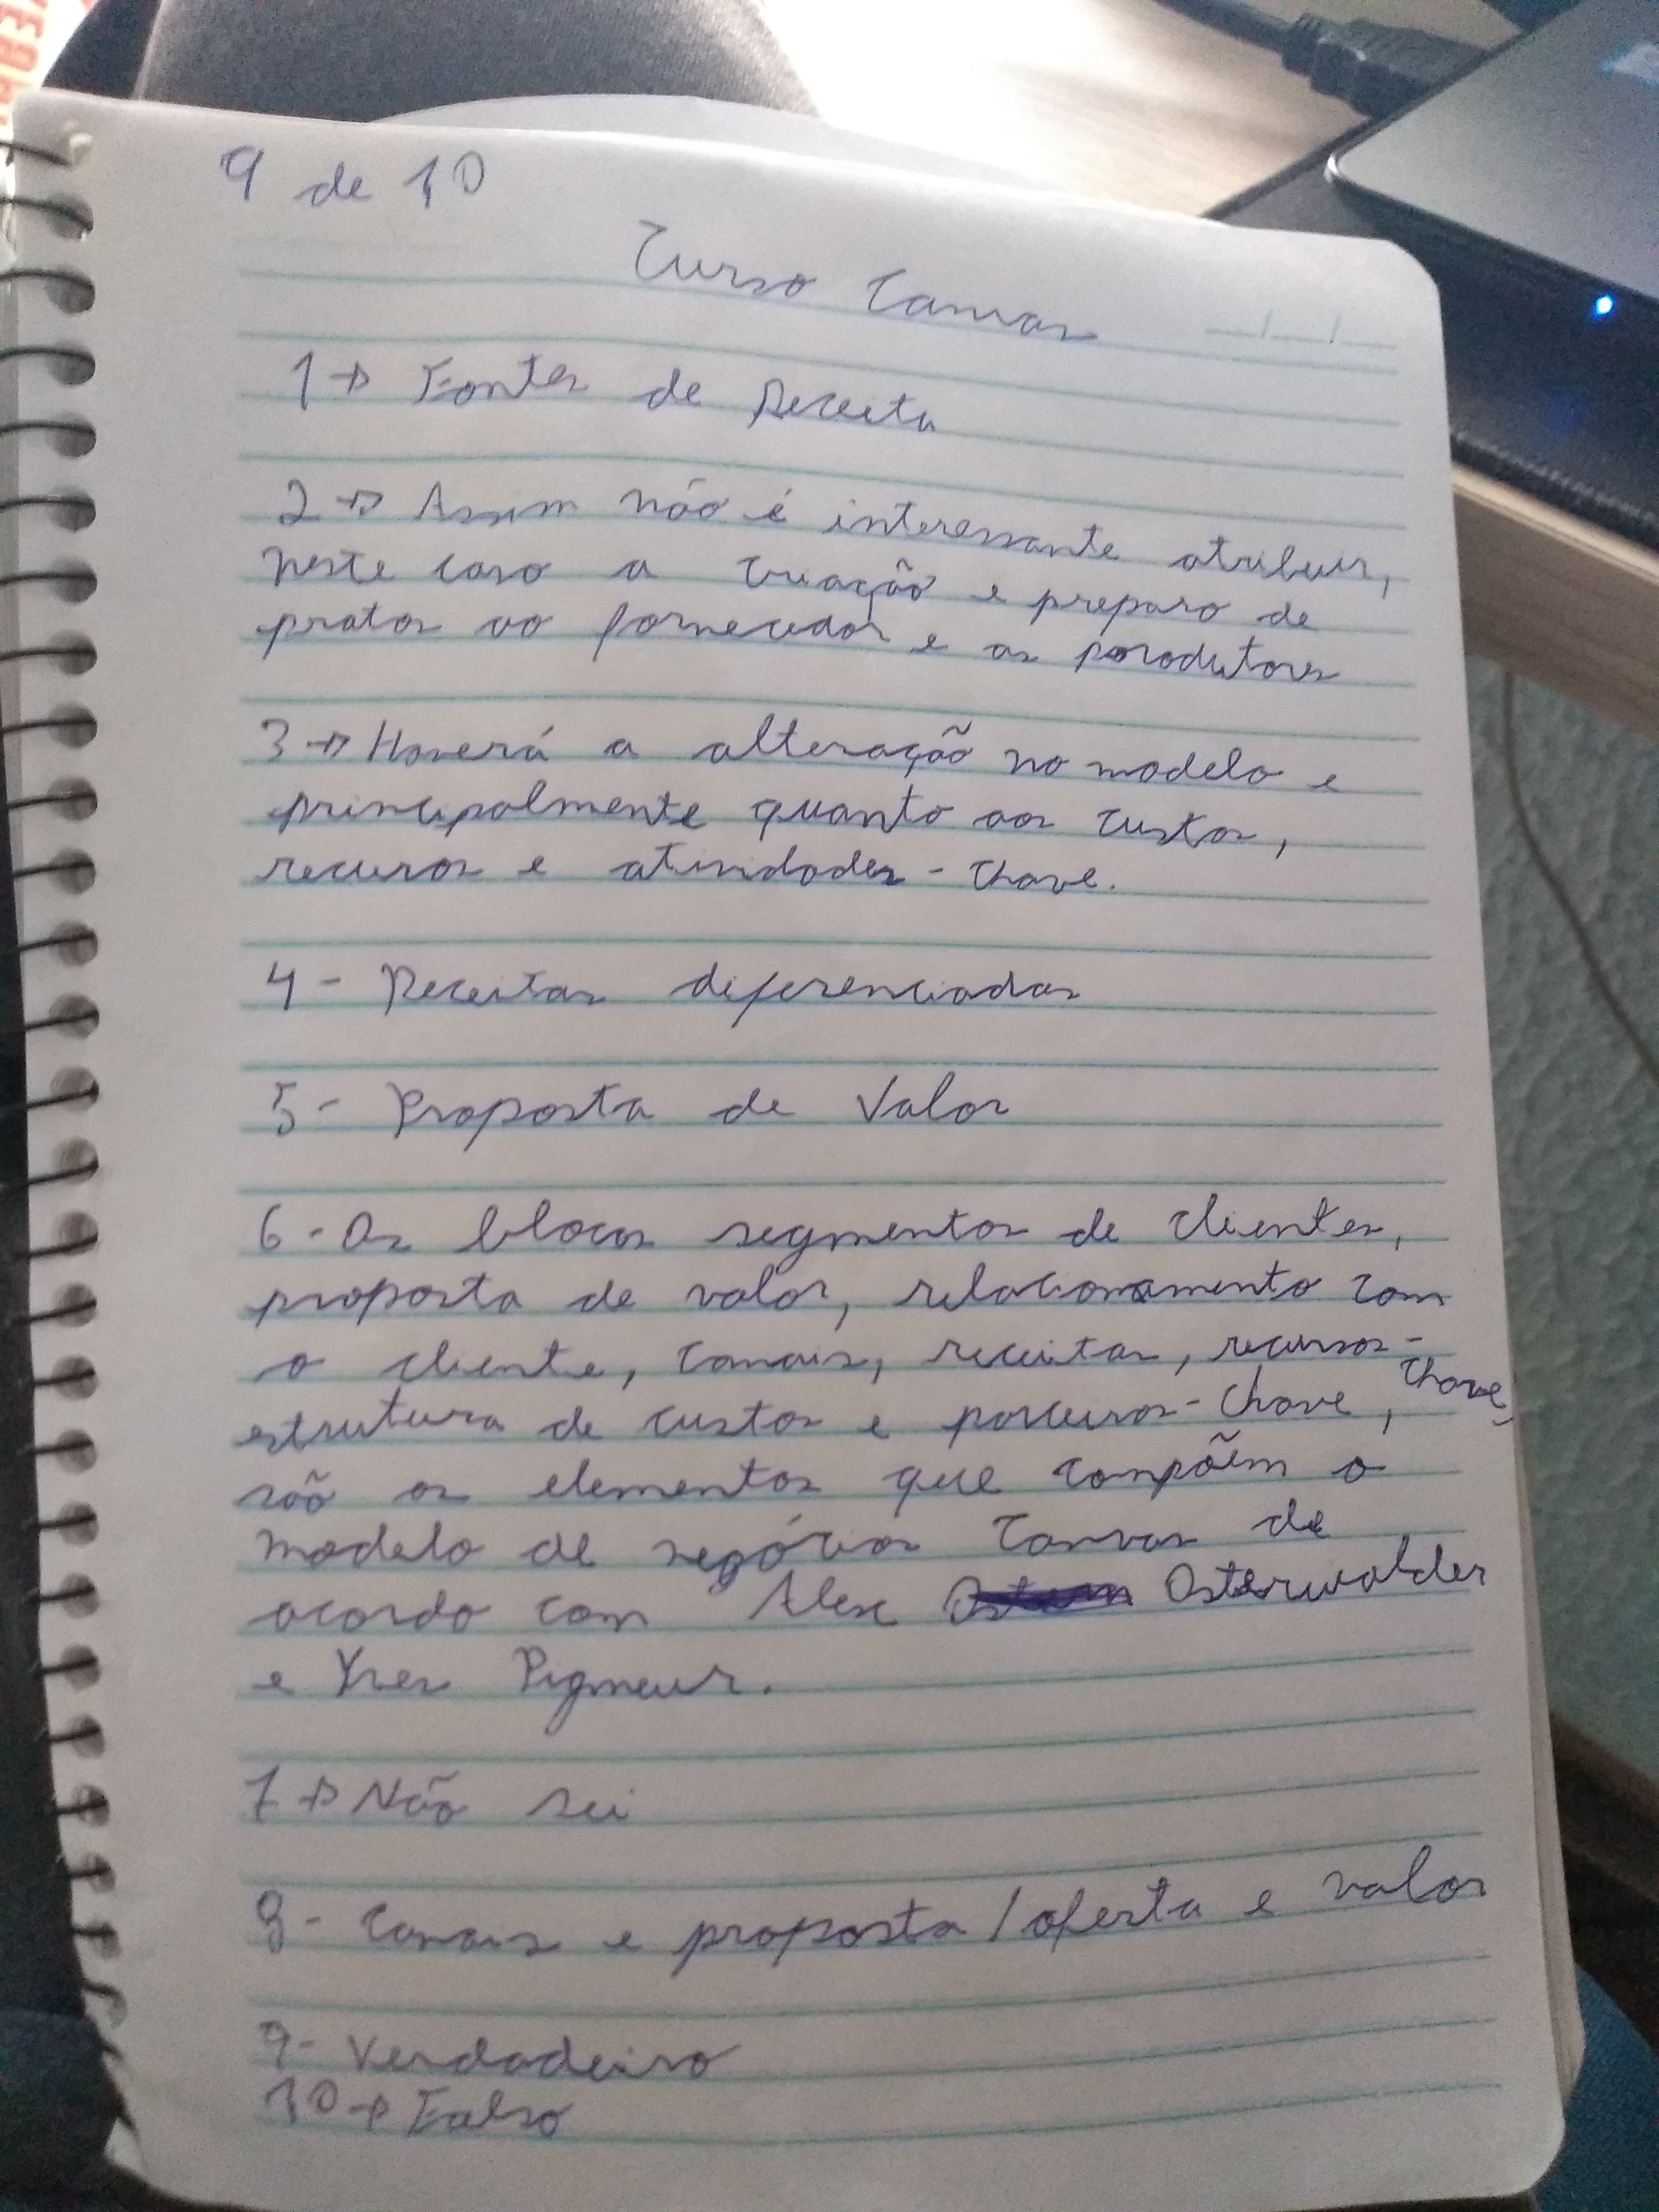 9 de 10
Curso Canvas
1→ Fontes de Receita
2→ Assim não é interessante atribuir,
neste caso a criação e preparo de
pratos ao fornecedor e as produtores
3→ Haverá a alteração no modelo e
principalmente quanto aos custos,
recursos e atividades-chave.
4- Receitas diferenciadas
5- Proposta de Valor
6- Os blocos segmentos de clientes,
proposta de valor, relacionamento com
o cliente, canais, receitas, recursos-
chave,
estrutura de custos e parceiros-chave,
são os elementos que compõem o
modelo de negócios Canvas de
acordo com Alex Osterwalder
e Yves Pigneur.
7→ Não sei
8- Canais e proposta/oferta e valor
9- Verdadeiro
10→ Falso